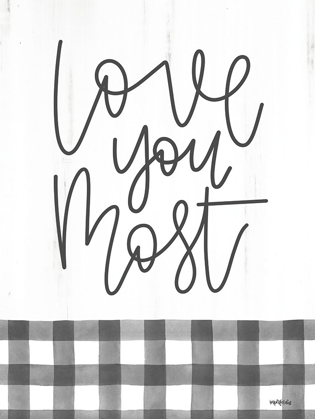 Love
you
Most